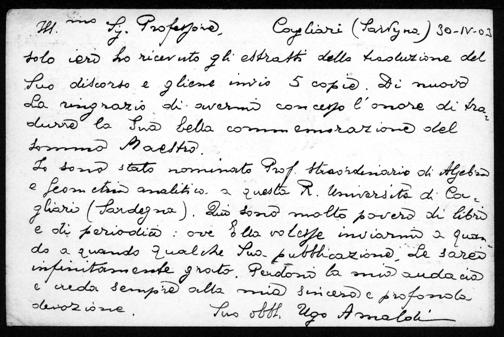 Ill.mo Sig. Professore, Cagliari (Sardegna) 30-IV-03
solo ieri ho ricevuto gli estratti della traduzione del
Suo discorso e gliene invio 5 copie. Di nuovo
La ringrazio di avermi concesso l'onore di tra-
durre la Sua bella commemorazione del
sommo Maestro.
Io sono stato nominato Prof. straordinario di Algebra
e Geometria analitica a questa R. Università di Ca-
gliari (Sardegna). Qui sono molto povero di libri
e di periodici: ove Ella volesse inviarmi a quan-
do a quando qualche Sua pubblicazione, Le sarei
infinitamente grato. Perdoni la mia audacia
e creda sempre alla mia sincera e profonda
devozione. Suo obbl. Ugo Amaldi